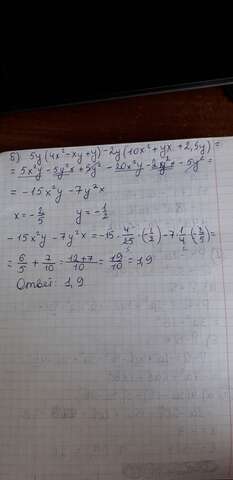 б) 5y(4x²-xy+y)-2y(10x²+yx+2,5y)=
= 5x²y - 5y²x + 5y² - 20x²y - 2y²x - 5y² =
= -15x²y - 7y²x
x = -2/5 y = -1/2
-15x²y - 7y²x = -15 · 4/25 · (-1/2) - 7 · 1/4 · (-2/5) =
= 6/5 + 7/10 = 12+7/10 = 19/10 = 1,9
Ответ: 1,9